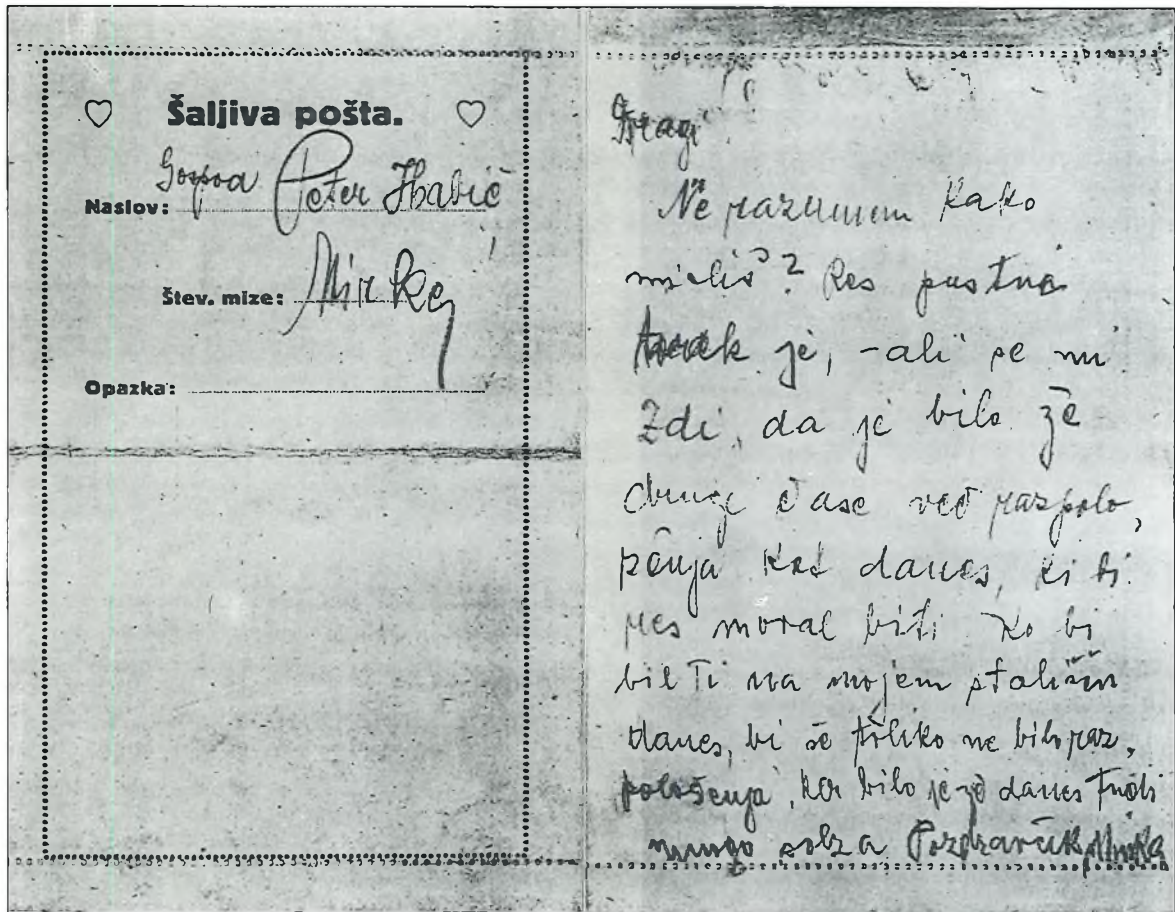 Šaljiva pošta.
Gospod Peter Habič
Naslov:
Štev. mize: Mirke
Opazka:
Dragi
Ne razumem kako
misliš? Res pustni
torek je, -ali se mi
zdi, da je bilo že
druge čase več razpolo,
ženja kot danes, ki bi
res moral biti Ko bi
bil Ti na mojem stališču
danes, bi še toliko ne bilo raz,
položenja, ker bilo je že danes tudi
mnogo solza Pozdravček Minka